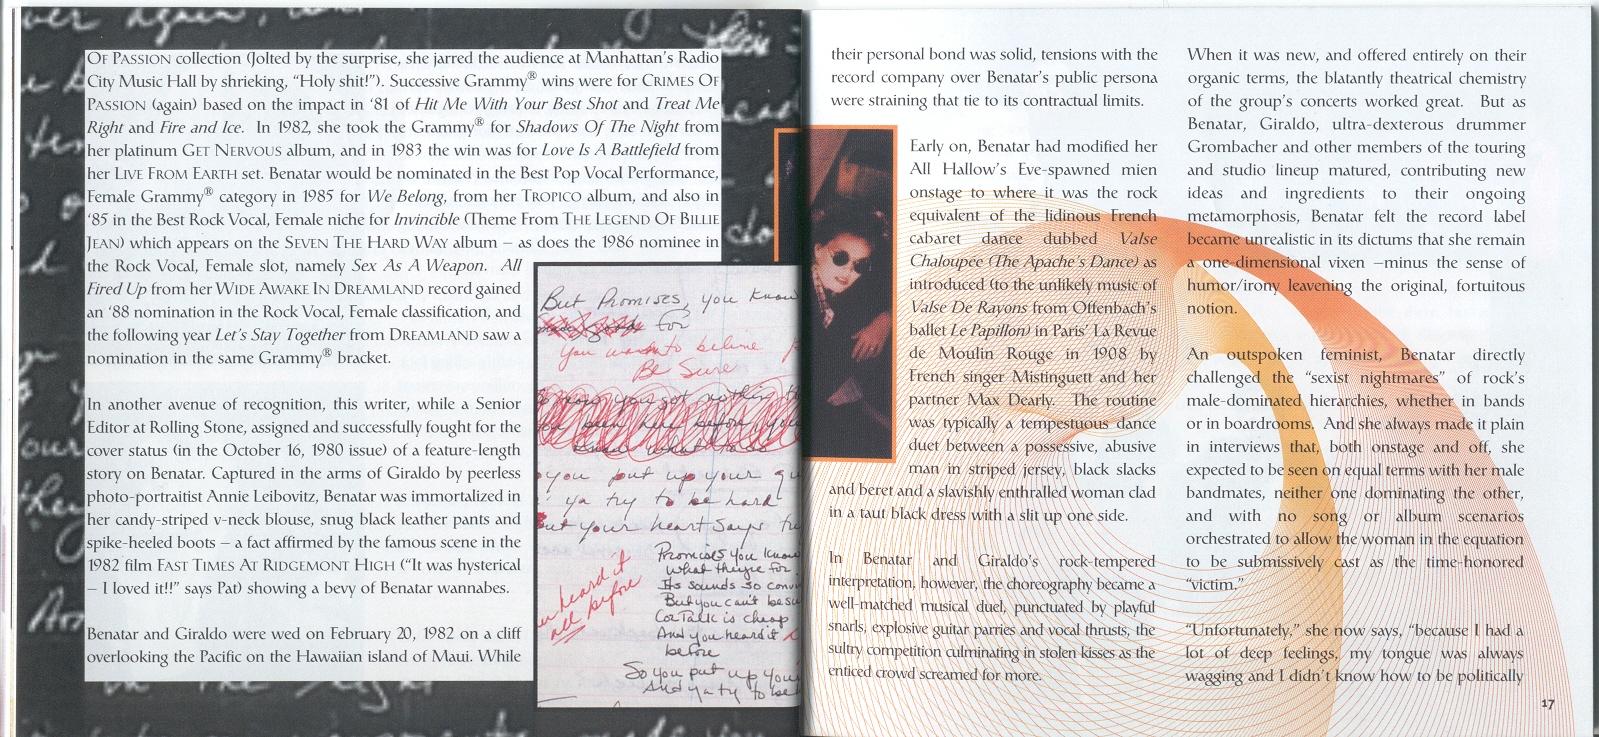 OF PASSION collection (Jolted by the surprise, she jarred the audience at Manhattan's Radio
City Music Hall by shrieking, "Holy shit!"). Successive Grammy® wins were for CRIMES OF
PASSION (again) based on the impact in '81 of Hit Me With Your Best Shot and Treat Me
Right and Fire and Ice. In 1982, she took the Grammy® for Shadows Of The Night from
her platinum GET NERVOUS album, and in 1983 the win was for Love Is A Battlefield from
her LIVE FROM EARTH set. Benatar would be nominated in the Best Pop Vocal Performance,
Female Grammy® category in 1985 for We Belong, from her TROPICO album, and also in
'85 in the Best Rock Vocal, Female niche for Invincible (Theme From THE LEGEND OF BILLIE
JEAN) which appears on the SEVEN THE HARD WAY album – as does the 1986 nominee in
the Rock Vocal, Female slot, namely Sex As A Weapon. All
Fired Up from her WIDE AWAKE IN DREAMLAND record gained
an '88 nomination in the Rock Vocal, Female classification, and
the following year Let's Stay Together from DREAMLAND saw a
nomination in the same Grammy® bracket.
In another avenue of recognition, this writer, while a Senior
Editor at Rolling Stone, assigned and successfully fought for the
cover status (in the October 16, 1980 issue) of a feature-length
story on Benatar. Captured in the arms of Giraldo by peerless
photo-portraitist Annie Leibovitz, Benatar was immortalized in
her candy-striped v-neck blouse, snug black leather pants and
spike-heeled boots – a fact affirmed by the famous scene in the
1982 film FAST TIMES AT RIDGEMONT HIGH ("It was hysterical
– I loved it!!" says Pat) showing a bevy of Benatar wannabes.
Benatar and Giraldo were wed on February 20, 1982 on a cliff
overlooking the Pacific on the Hawaiian island of Maui. While
But Promises, you know
for
you want to believe
Be Sure
you put up your
ya try to be hard
but your heart says
heard it
all before
Promises you know
What they're for
Its sounds so
But you can't be
Cos Talk is cheap
And you heard it
before
So you put up your
And ya try to be
their personal bond was solid, tensions with the
record company over Benatar's public persona
were straining that tie to its contractual limits.
Early on, Benatar had modified her
All Hallow's Eve-spawned mien
onstage to where it was the rock
equivalent of the lidinous French
cabaret dance dubbed Valse
Chaloupee (The Apache's Dance) as
introduced (to the unlikely music of
Valse De Rayons from Offenbach's
ballet Le Papillon) in Paris' La Revue
de Moulin Rouge in 1908 by
French singer Mistinguett and her
partner Max Dearly. The routine
was typically a tempestuous dance
duet between a possessive, abusive
man in striped jersey, black slacks
and beret and a slavishly enthralled woman clad
in a taut black dress with a slit up one side.
In Benatar and Giraldo's rock-tempered
interpretation, however, the choreography became a
well-matched musical duel, punctuated by playful
snarls, explosive guitar parries and vocal thrusts, the
sultry competition culminating in stolen kisses as the
enticed crowd screamed for more.
When it was new, and offered entirely on their
organic terms, the blatantly theatrical chemistry
of the group's concerts worked great. But as
Benatar, Giraldo, ultra-dexterous drummer
Grombacher and other members of the touring
and studio lineup matured, contributing new
ideas and ingredients to their ongoing
metamorphosis, Benatar felt the record label
became unrealistic in its dictums that she remain
a one-dimensional vixen –minus the sense of
humor/irony leavening the original, fortuitous
notion.
An outspoken feminist, Benatar directly
challenged the "sexist nightmares" of rock's
male-dominated hierarchies, whether in bands
or in boardrooms. And she always made it plain
in interviews that, both onstage and off, she
expected to be seen on equal terms with her male
bandmates, neither one dominating the other,
and with no song or album scenarios
orchestrated to allow the woman in the equation
to be submissively cast as the time-honored
"victim."
"Unfortunately," she now says, "because I had a
lot of deep feelings, my tongue was always
wagging and I didn't know how to be politically
17